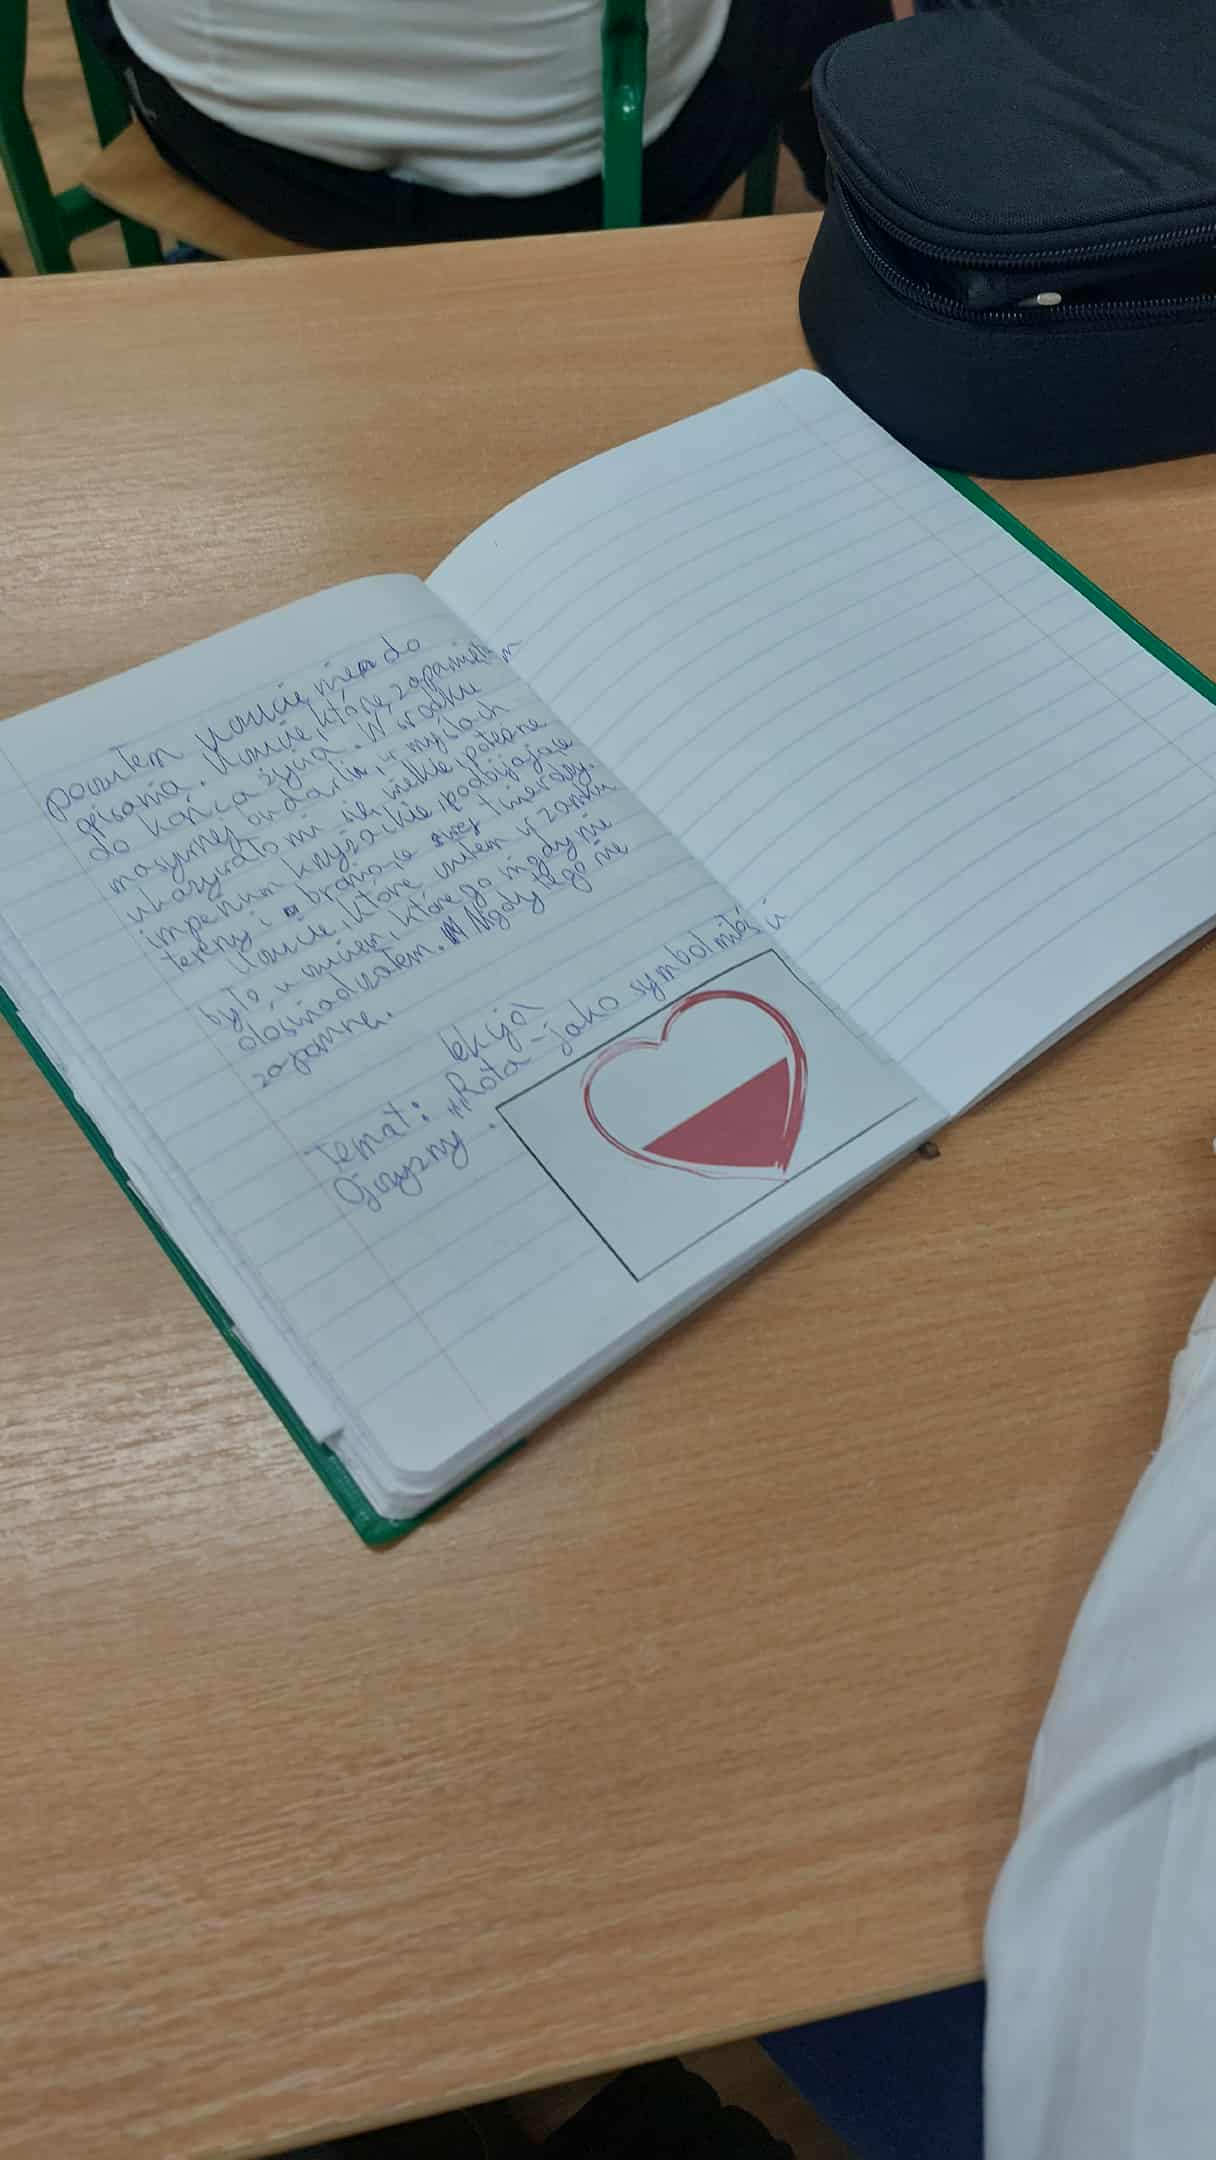 poczułem uczucie nie do
opisania. Uczucie, które zapamiętam
do końca życia. W środku
masywnej budowli, w myślach
ukazywało mi się wielkie, potężne
imperium krzyżackie, podbijające
tereny i broniące swej twierdzy.
Uczucie, które czułem w zamku
było uczuciem, którego nigdy nie
doświadczałem. Nigdy tego nie
zapomnę.
lekcja
Temat: „Rota - jako symbol miłości
Ojczyzny.